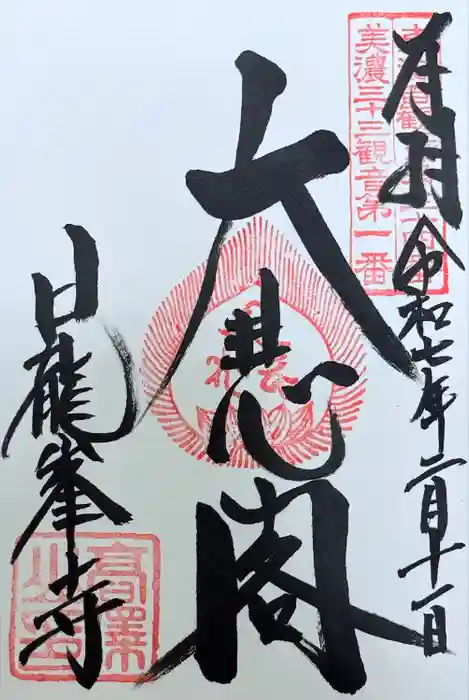 奉拝
令和七年二月十一日
美濃三十三観音第一番
大悲閣
日龍峯寺
高澤